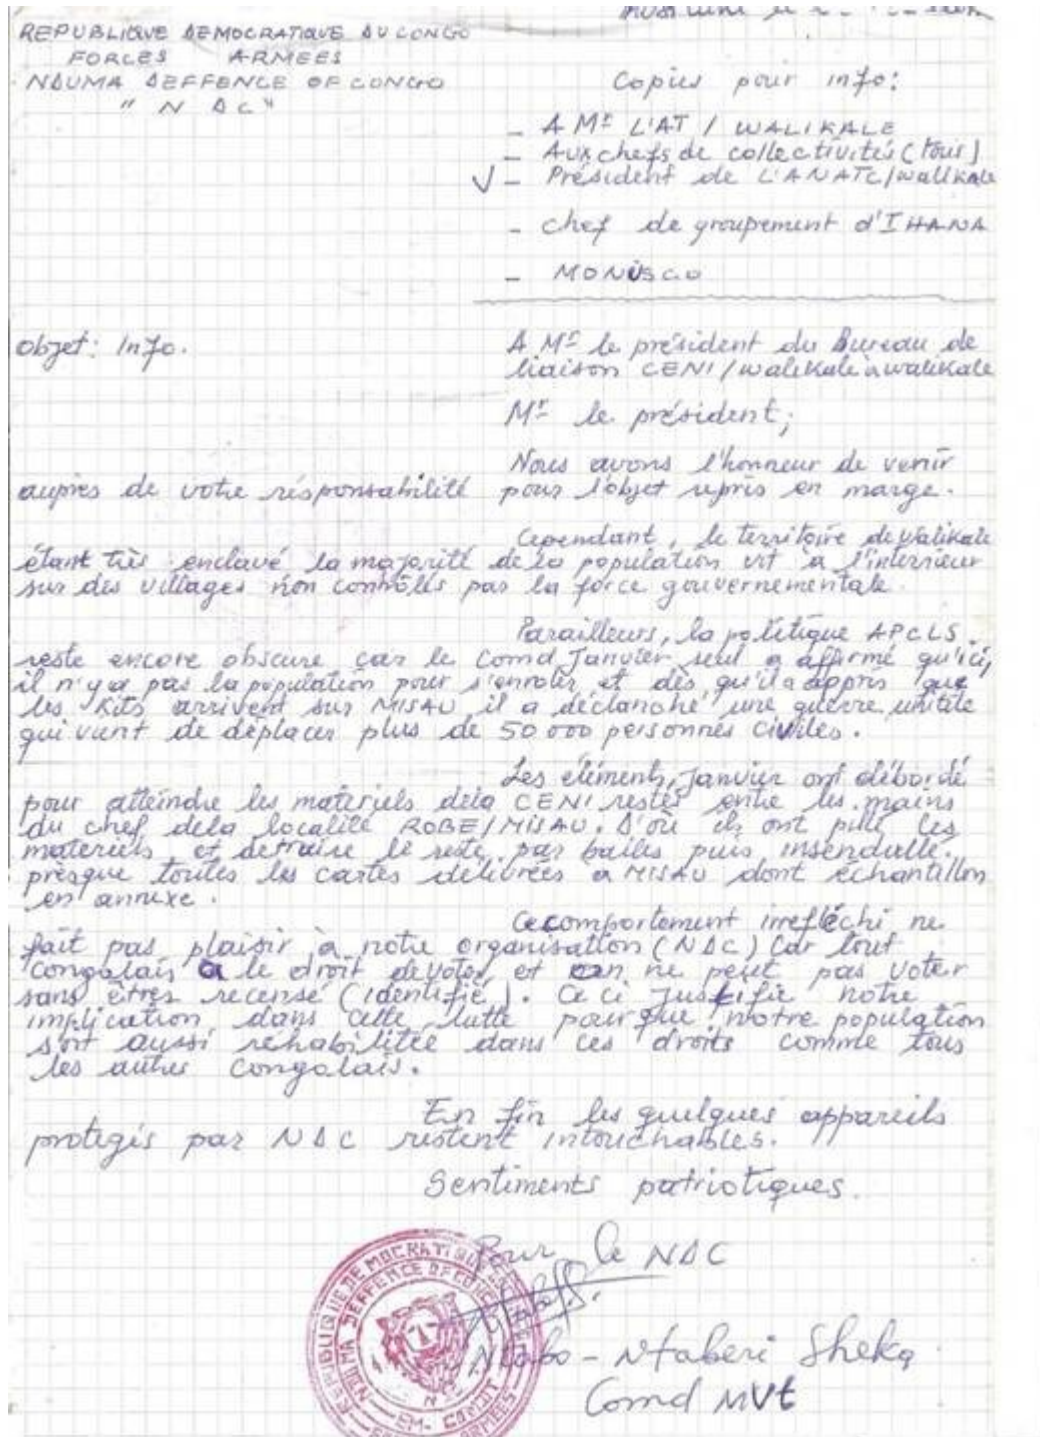 REPUBLIQUE DEMOCRATIQUE DU CONGO
FORCES ARMEES
NDUMA DEFFENCE OF CONGO
" N D C "
Copies pour info:
- A Mr L'AT / WALIKALE
- Aux chefs de collectivités (tous)
√ - Président de L'ANATC/walikale
- chef de groupement d'IHANA
- MONUSCO
Objet: Info.
A Mr le président du Bureau de
liaison CENI/walikale à walikale
Mr le président;
Nous avons l'honneur de venir
auprès de votre résponsabilité pour l'objet repris en marge.
Cependant, le territoire de walikale
étant très enclavé la majorité de la population vit à l'intérieur
sur des villages non contrôlés par la force gouvernementale.
Parailleurs, la politique APCLS
reste encore obscure car le Comd Janvier seul a affirmé qu'ici,
il n'ya pas la population pour s'enroler et dès qu'il a appris que
les Kits arrivent sur MISAU il a déclanché une guerre
qui vient de déplacer plus de 50 000 personnes civiles.
Les éléments Janvier ont débordé
pour atteindre les materiels dela CENI restés entre les mains
du chef dela localité ROBE/MISAU. D'où ils ont pillé les
materiels et detruire le reste par balles puis
presque toutes les cartes délivrées à MISAU dont échantillon
en annexe.
Ce comportement irrefléchi ne
fait pas plaisir à notre organisation (NDC) Car tout
congolais a le droit de voter et on ne peut pas voter
sans êtres recensé (identifié). Ce ci justifie notre
implication dans cette lutte pour que notre population
soit aussi rehabilitée dans ces droits comme tous
les autres congolais.
En fin les quelques appareils
protegés par NDC restent intouchables.
Sentiments patriotiques.
Pour le NDC
Ntabo - Ntaberi Sheka
Comd MVt
REPUBLIQUE DEMOCRATIQUE
NDUMA DEFFENCE OF CONGO